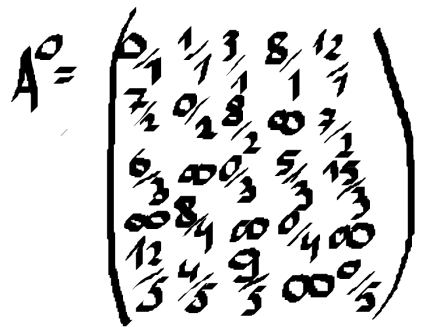 A⁰ =
0/1 1/1 3/1 8/1 12/1
7/2 0/2 8/2 ∞ 7/2
6/3 ∞ 0/3 5/3 15/3
∞ 8/4 ∞ 0/4 ∞
12/5 4/5 9/5 ∞ 0/5